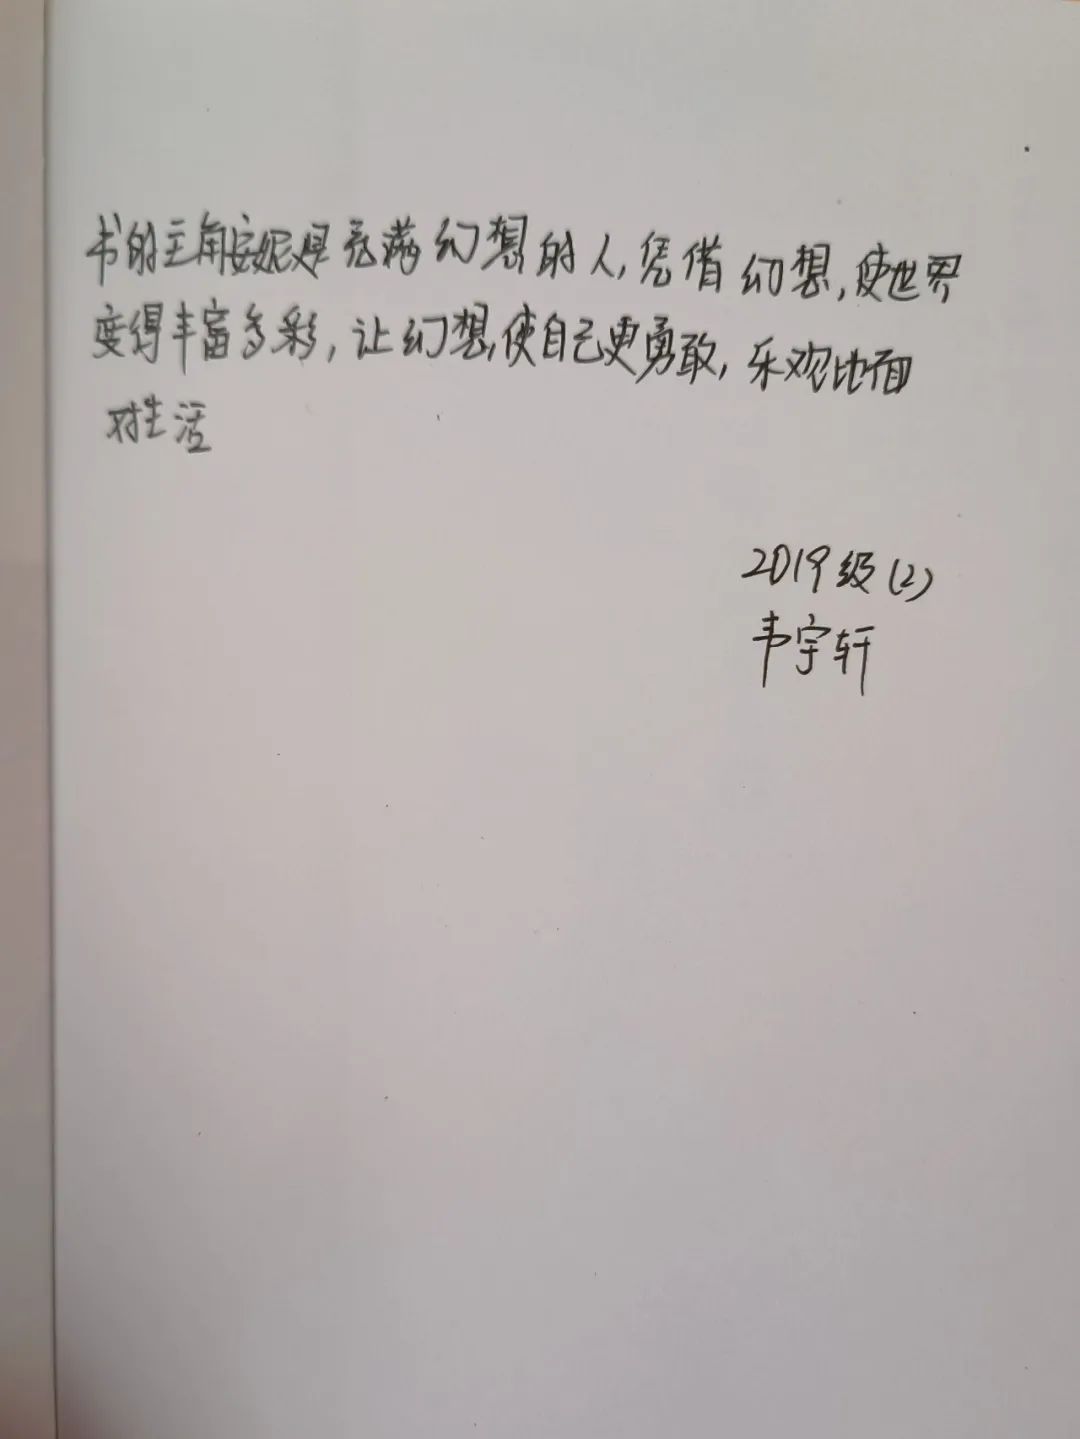 书的主角安妮是充满幻想的人,凭借幻想,使世界
变得丰富多彩,让幻想,使自己更勇敢,乐观地面
对生活
2019级(2)
韦宇轩